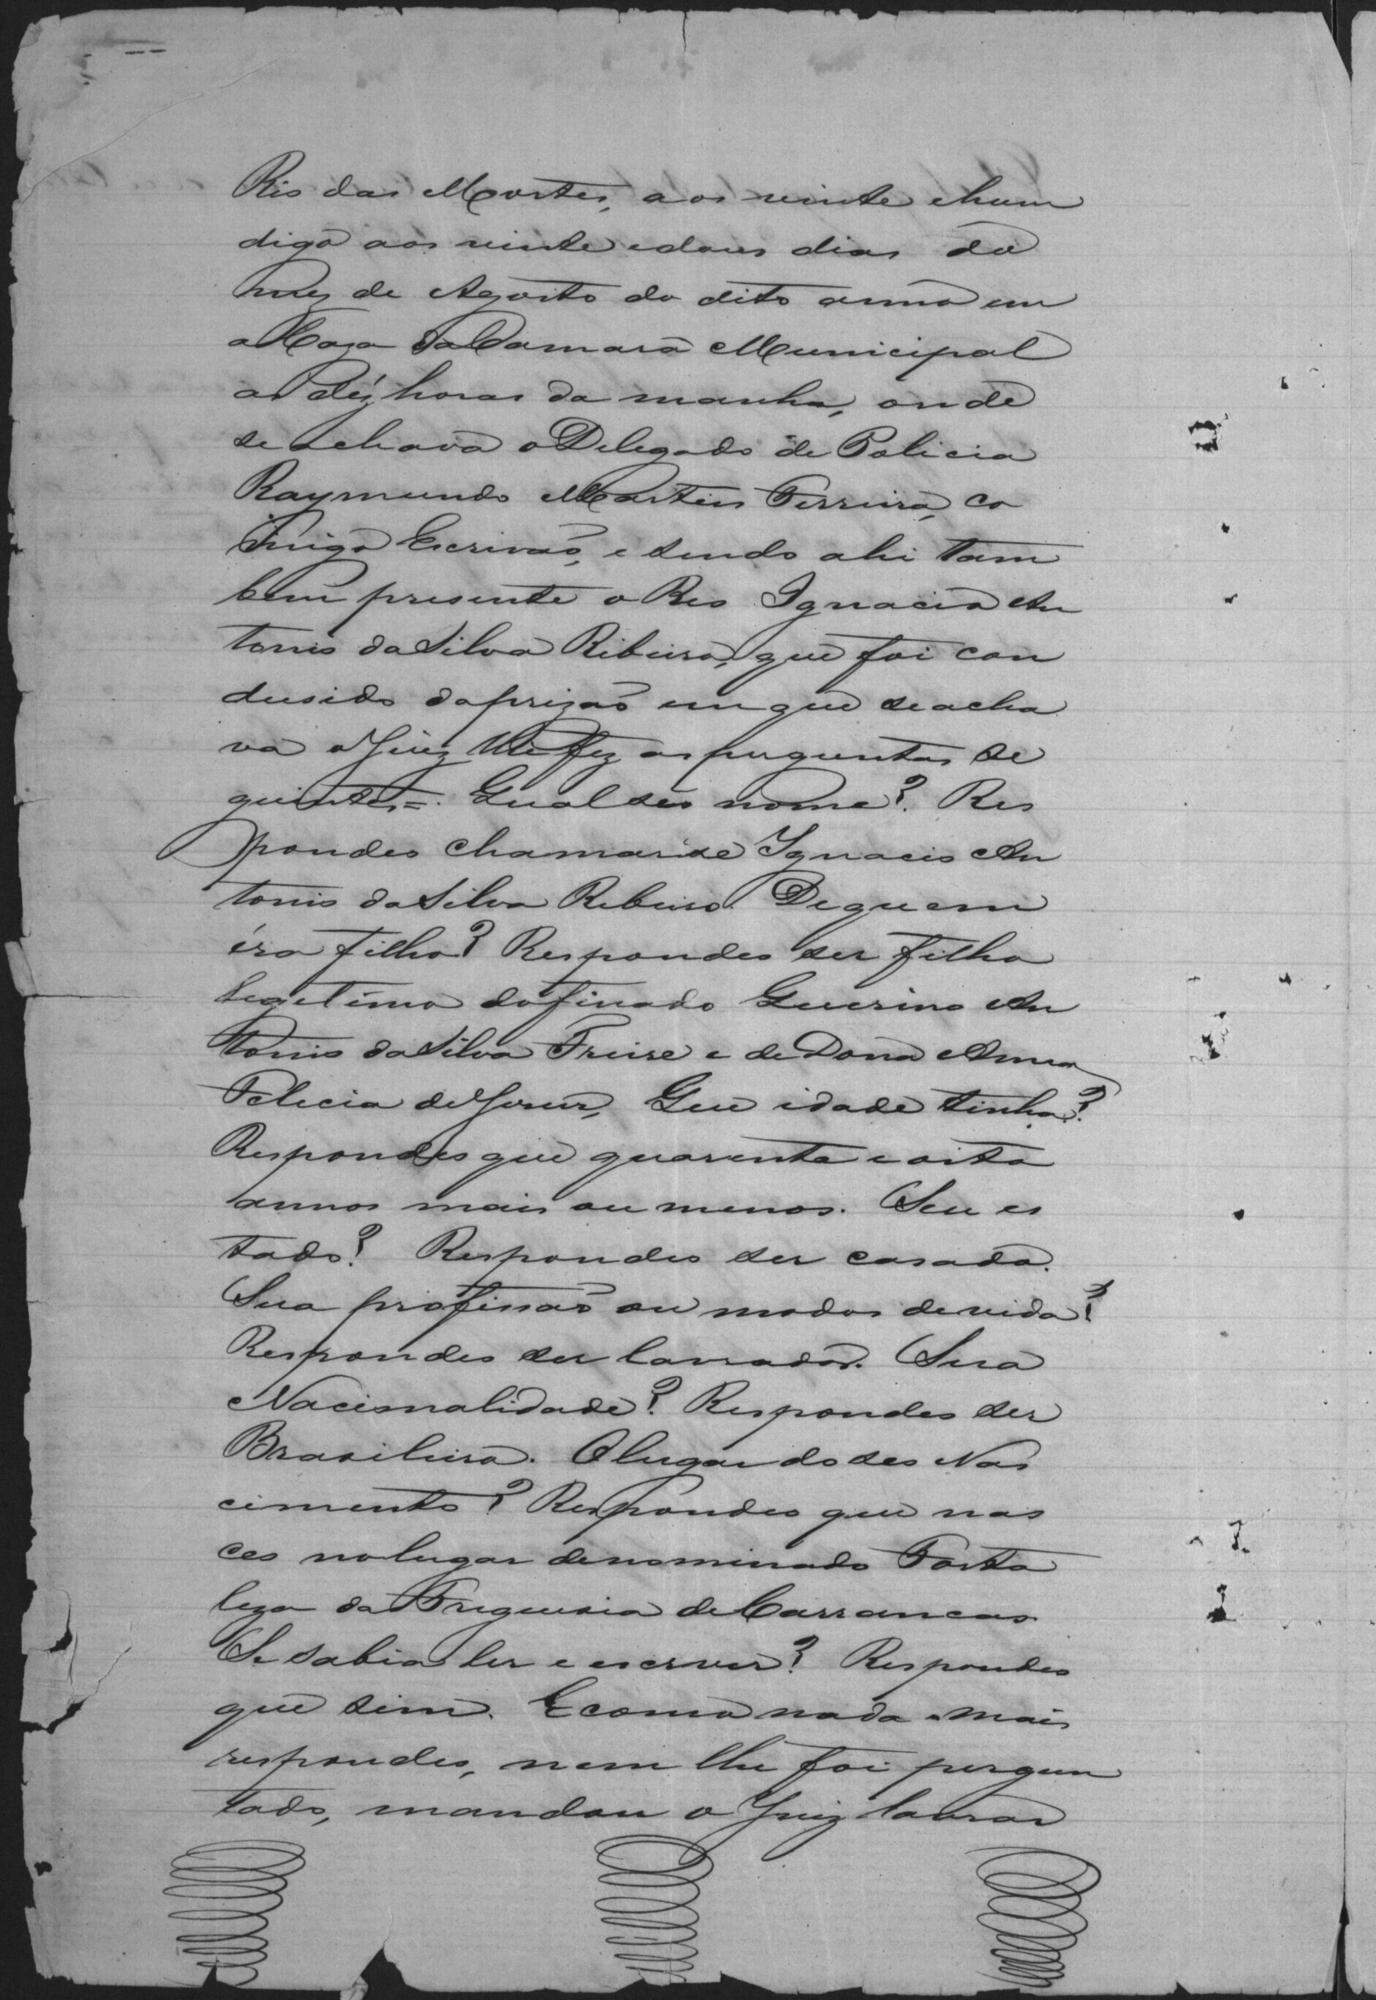 Rio das Mortes, aos vinte ehum
digo aos vinte edous dias do
mez de Agosto do dito anno em
a Caza da Camara Municipal
as déz horas da manha, onde
se achava o Delegado de Policia
Raymundo Martins Ferreira, co
migo Escrivaõ, e sendo ahi tam
bem presente o Reo Ignacio An
tonio da Silva Ribeiro, que foi con
dusido daprizaõ emque seacha
va o Juiz lhe fez asperguntas se
guintes=. Qual seo nome? Res
pondeo chamarse Ignacio An
tonio da Silva Ribeiro. Dequem
éra filho? Respondeo ser filho
Legetimo dofinado Guerino An
tonio da Silva Freire e de Dona Anna
Felecia de Jesus, Que idade tinha?
Respondeo que quarenta e oito
annos mais ou menos. Seu es
tado? Respondeo ser casado.
Sua profissaõ ou modos devida?
Respondeo ser lavrador. Sua
Nacionalidade? Respondeo ser
Brasileiro. Olugar do seo Nas
cimento? Respondeo que nas
ceo nolugar denominado Forta
leza da Freguesia de Carrancas
Se sabia ler e escrever? Respondeo
que sim. Ecomo nada mais
respondeo, nem lhe foi pergun
tado, mandou o Juiz lavrar